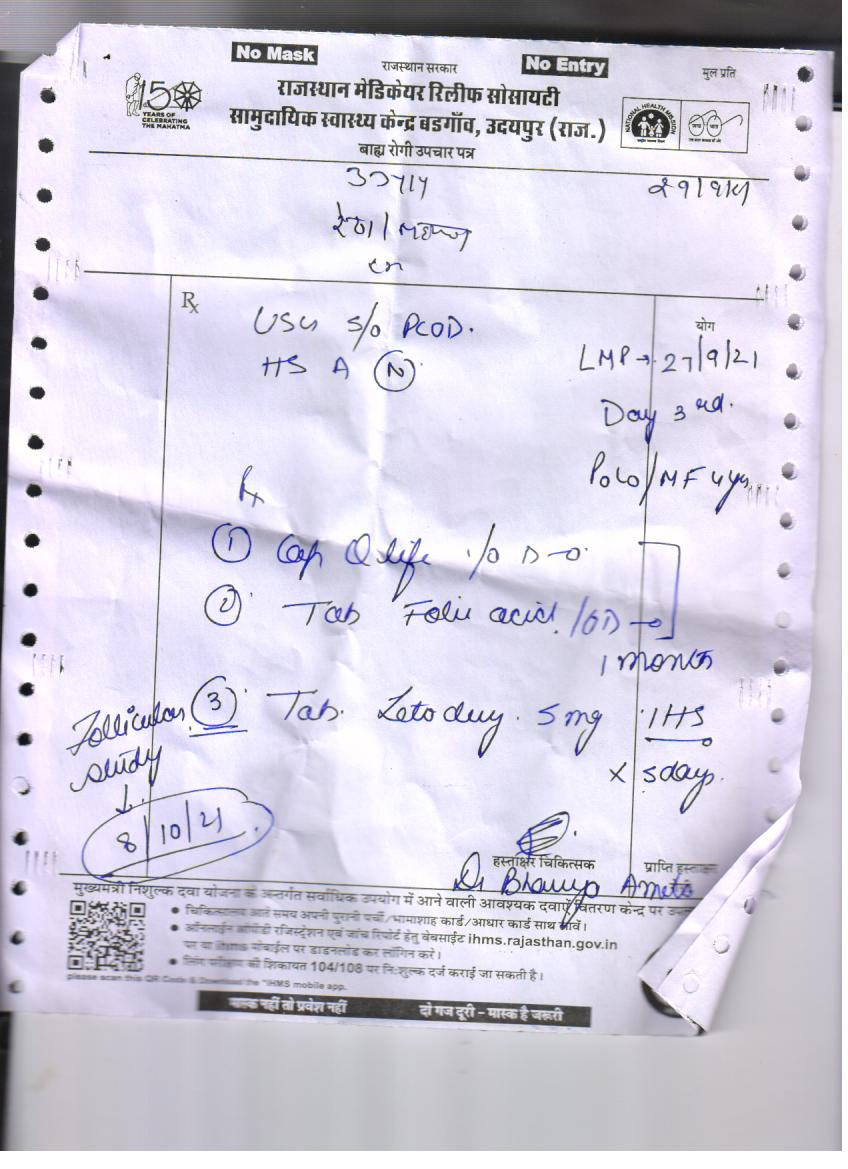 No Mask
राजस्थान सरकार
No Entry
मुल प्रति
150
YEARS OF
CELEBRATING
THE MAHATMA
राजस्थान मेडिकेयर रिलीफ सोसायटी
सामुदायिक स्वास्थ्य केन्द्र बडगाँव, उदयपुर (राज.)
NATIONAL HEALTH MISSION
बाह्य रोगी उपचार पत्र
Rx
योग
USG S/O PCOD.
HSA N
LMP → 27/9/21
Day 3rd.
P0L0/MF 4yrs
Rx
1 Cap Q life 1/OD
2 Tab Folic acid 1/OD
1 month
Follicular
study
3 Tab. Letoduy. 5mg 1HS
x 5days.
8/10/21
हस्ताक्षर चिकित्सक
प्राप्ति हस्ताक्षर
Dr Bhavya Ameta
मुख्यमंत्री निशुल्क दवा योजना के अन्तर्गत सर्वाधिक उपयोग में आने वाली आवश्यक दवाएँ वितरण केन्द्र पर
• चिकित्सालय आते समय अपनी पुरानी पर्ची/भामाशाह कार्ड/आधार कार्ड साथ लावें।
• ऑनलाईन ओपीडी रजिस्ट्रेशन एवं जांच रिपोर्ट हेतु वेबसाईट ihms.rajasthan.gov.in
पर या ihms मोबाईल पर डाउनलोड कर लॉगिन करे।
• की शिकायत 104/108 पर नि:शुल्क दर्ज कराई जा सकती है।
please scan this QR Code & Download the "IHMS mobile app.
मास्क नहीं तो प्रवेश नहीं
दो गज दूरी - मास्क है जरूरी